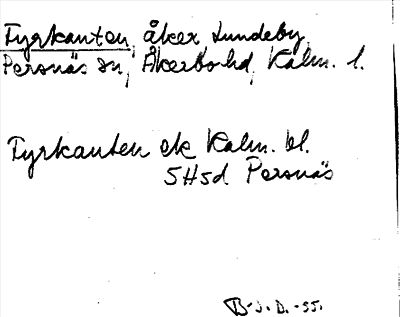 Fyrkanten, åker Lundeby,
Persnäs sn, Åkerbo hd, Kalm. l.
Fyrkanten ek Kalm. bl.
5H5d Persnäs
B-J. D. -55.